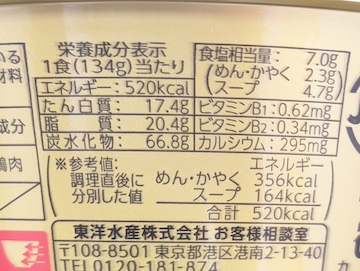 いる
材料
成分
鶏肉
栄養成分表示
1食(134g)当たり
エネルギー: 520kcal
たん白質: 17.4g
脂質: 20.4g
炭水化物: 66.8g
食塩相当量: 7.0g
(めん・かやく 2.3g
スープ 4.7g)
ビタミンB1: 0.62mg
ビタミンB2: 0.34mg
カルシウム: 295mg
※参考値: エネルギー
調理直後に めん・かやく 356kcal
分別した値 スープ 164kcal
合計 520kcal
東洋水産株式会社 お客様相談室
〒108-8501 東京都港区港南2-13-40
TEL0120-181-874